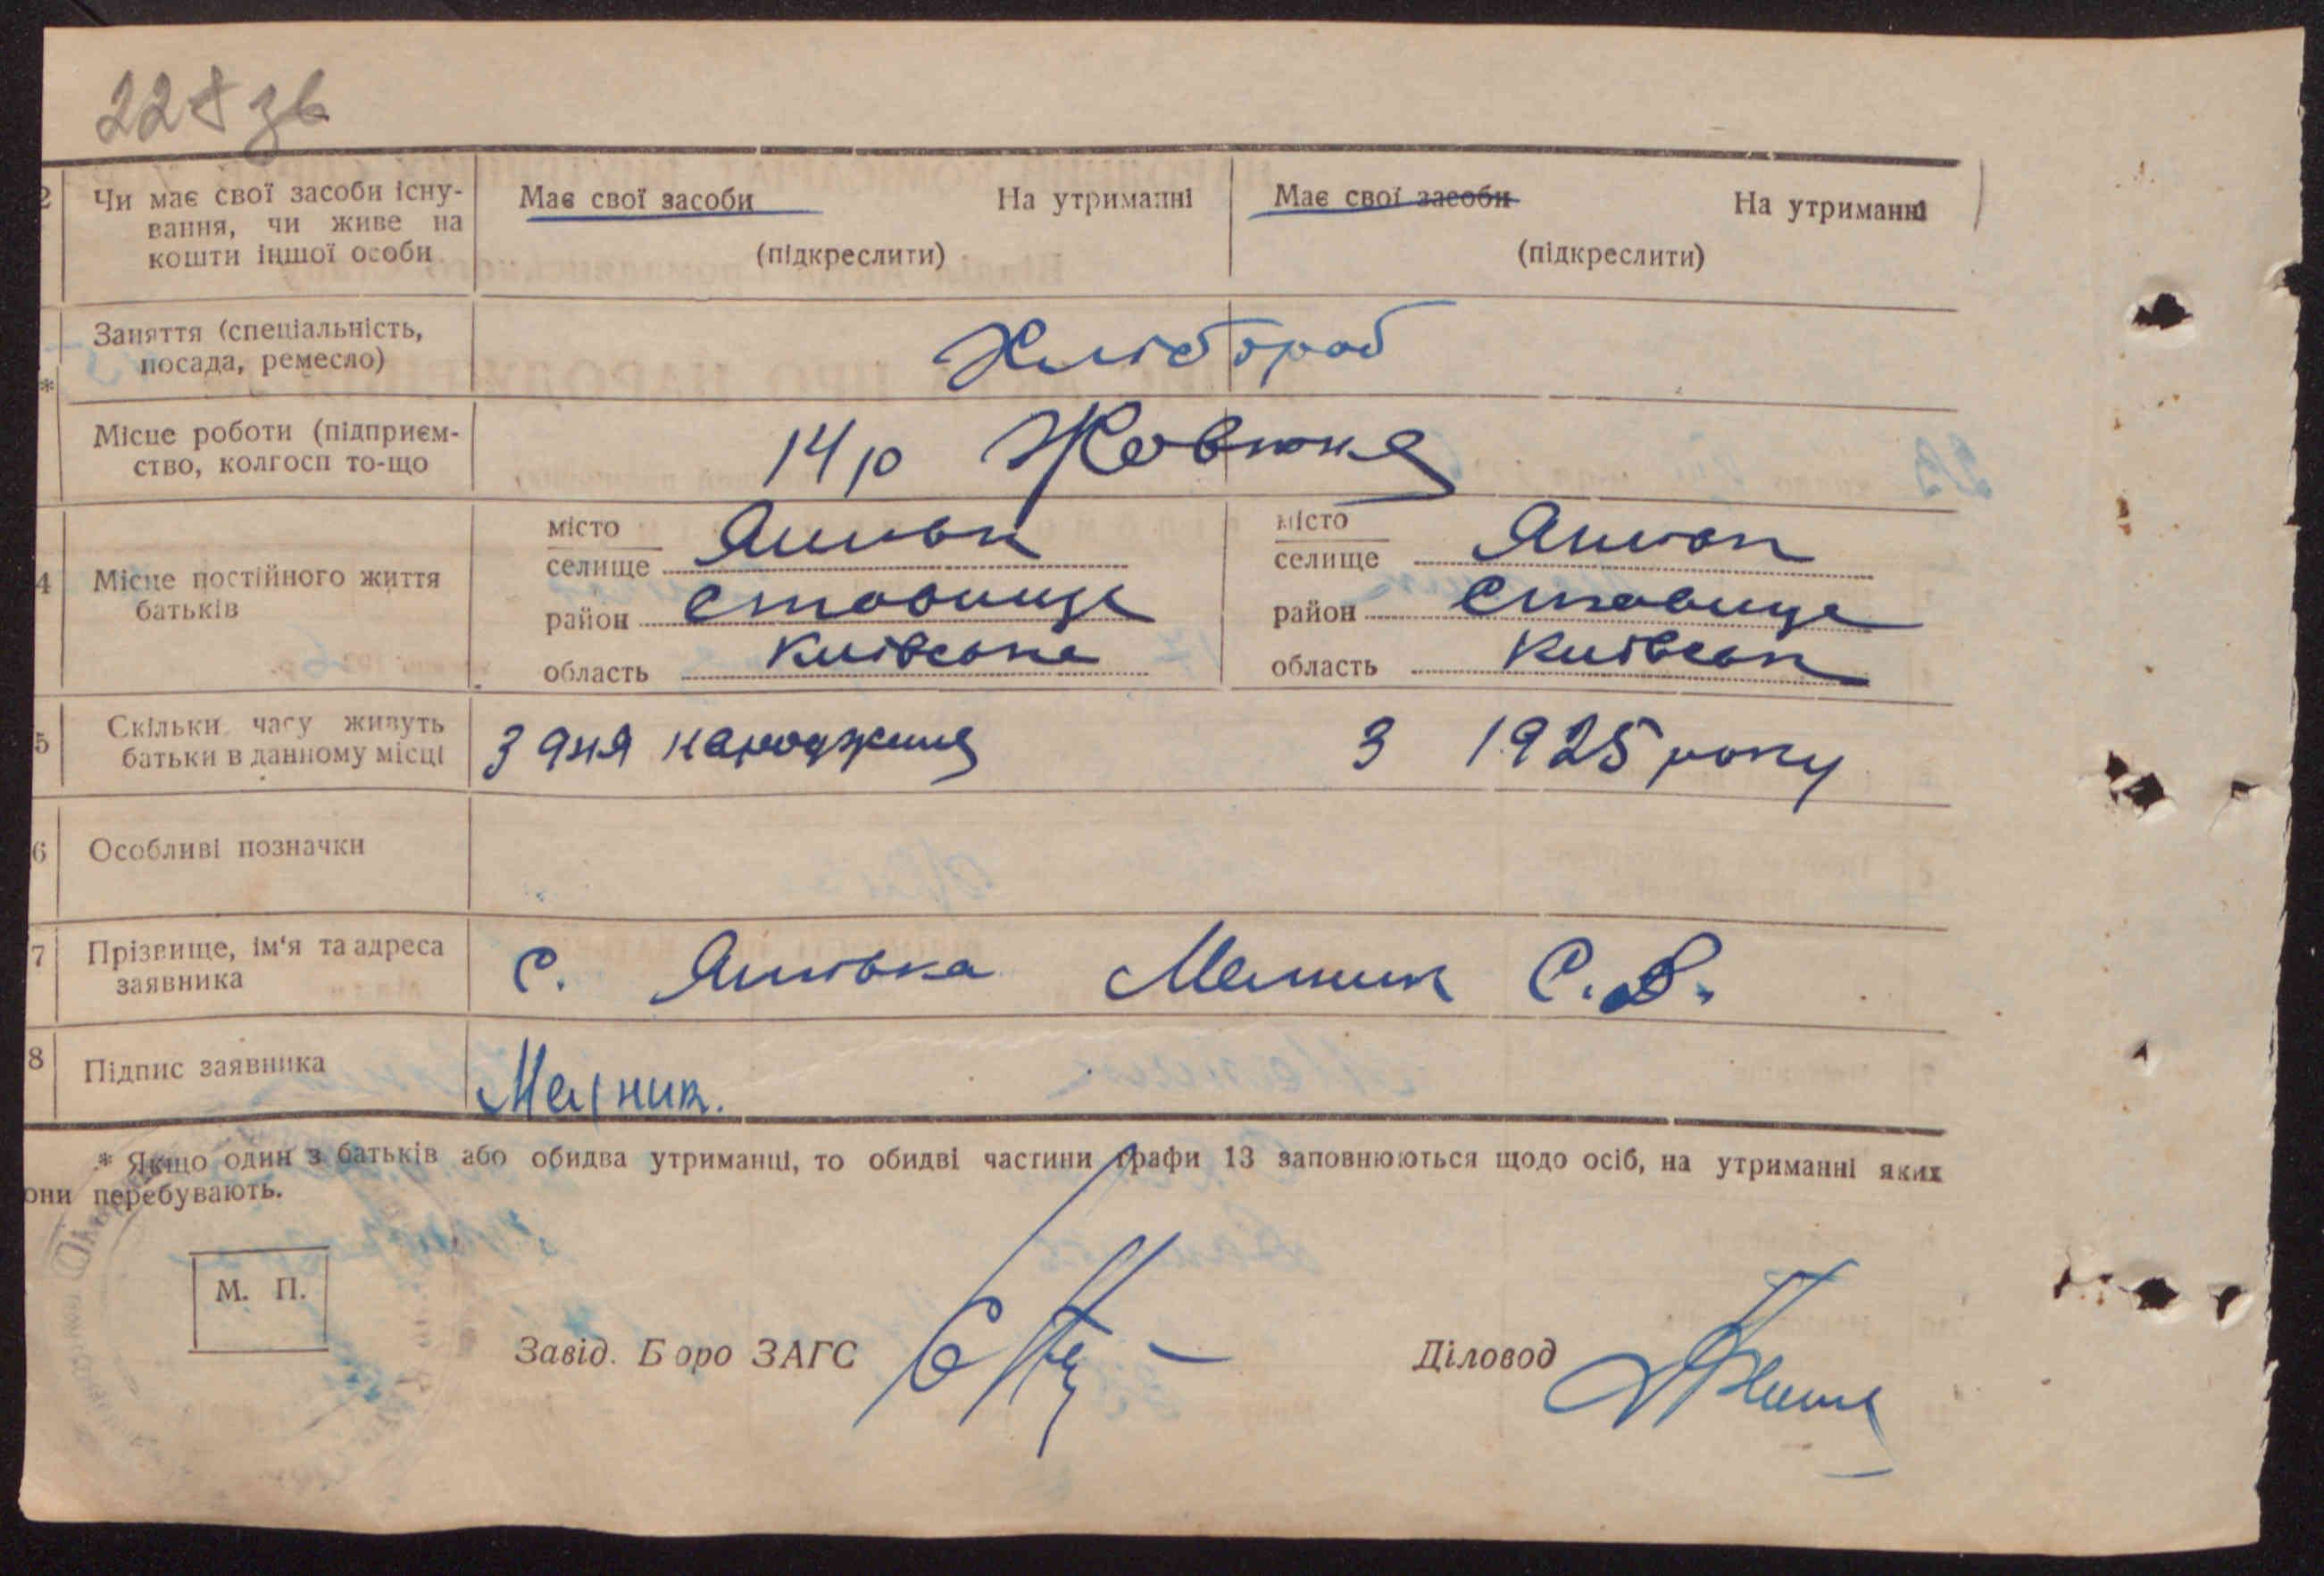 228 зв
2 Чи має свої засоби існу-
вання, чи живе на
кошти іншої особи
Має свої засоби На утриманні
(підкреслити)
Має свої засоби На утриманні
(підкреслити)
Заняття (спеціальність,
посада, ремесло)
Хлібороб
*
Місце роботи (підприєм-
ство, колгосп то-що
14 р Жовтня
4 Місце постійного життя
батьків
місто
селище
район Ставище
область Київська
місто
селище
район Ставище
область Київськ
5 Скільки часу живуть
батьки в данному місці
З дня народження
З 1925 року
6 Особливі позначки
7 Прізвище, ім'я та адреса
заявника
с. Мельник С.
8 Підпис заявника
Мельник.
* Якщо один з батьків або обидва утриманці, то обидві частини графи 13 заповнюються щодо осіб, на утриманні яких
они перебувають.
М. П.
Завід. Бюро ЗАГС
Діловод